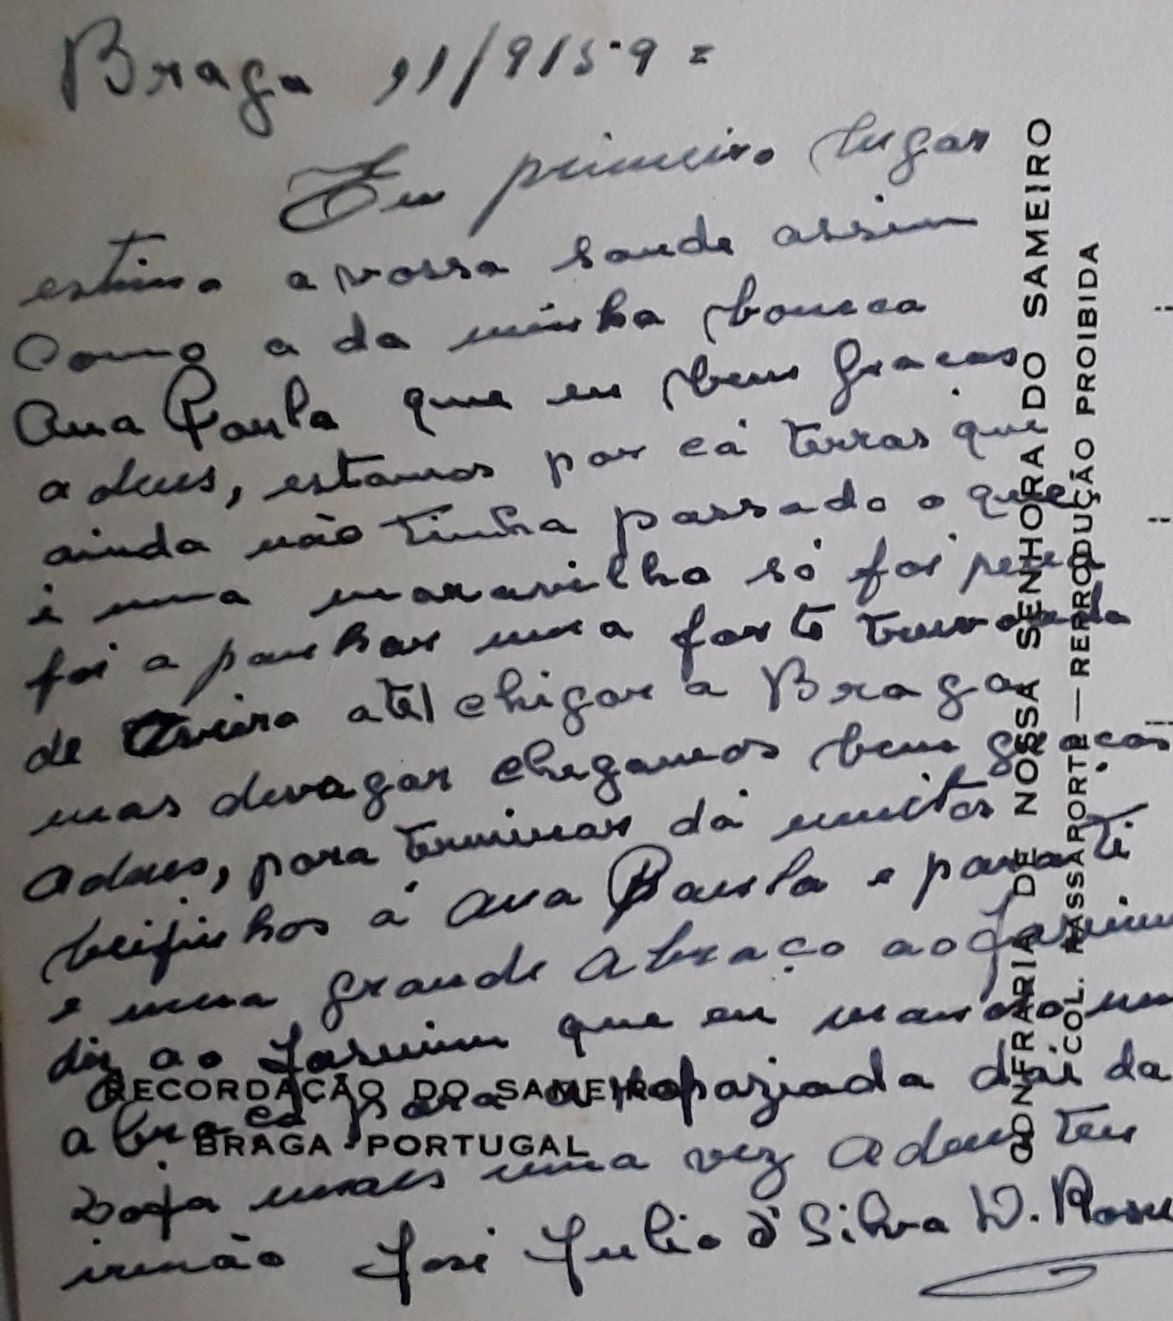 Braga 11/9/59=
Em primeiro lugar
estimo a vossa saude assim
Como a da minha boneca
Ana Paula que eu bem Gracas
a deus, estamos por cá terras que
ainda não tinha passado o que
é uma maravilha só foi pena
foi a panhar uma forte truvoada
de Aveiro até chigar a Braga
mas devagar chegamos bem graças
a deus, para terminar dá muitos
beijinhos á Ana Paula e para ti
e uma grande abraço ao Jasmim
diz ao Jasmim que eu mando um
abraço para a rapaziada dai da
Loja mais uma vez adeus teu
irmão José Julio d' Silva D.
RECORDAÇÃO DO SAMEIRO
BRAGA - PORTUGAL
CONFRARIA DE NOSSA SENHORA DO SAMEIRO
COL. PASSAPORTE — REPRODUÇÃO PROIBIDA